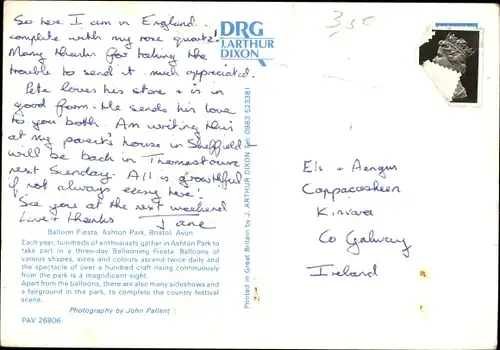 So here I am in England
complete with my rose quartz!
Many thanks for taking the
trouble to send it - much appreciated.
Pete loves his stone + is in
good form. He sends his love
to you both. Am writing this
at my parent's house in Sheffield -
will be back in Thomastown
next Sunday. All is growthful
if not always easy here!
See you at the next weekend
Love + thanks Jane
Balloon Fiesta, Ashton Park, Bristol, Avon
Each year, hundreds of enthusiasts gather in Ashton Park to
take part in a three-day Ballooning Fiesta. Balloons of
various shapes, sizes and colours ascend twice daily and
the spectacle of over a hundred craft rising continuously
from the park is a magnificent sight.
Apart from the balloons, there are also many sideshows and
a fairground in the park, to complete the country festival
scene.
Photography by John Pallent
PAV 26806
DRG
J. ARTHUR
DIXON
Printed in Great Britain by J. ARTHUR DIXON Tel: 0983 523381
Els + Aengus
Cappacasheen
Kinvara
Co Galway
Ireland